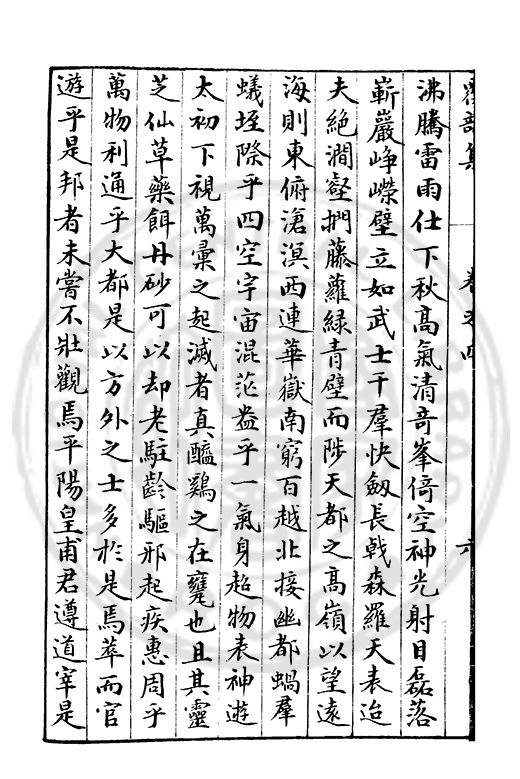 卷之四 六
沸騰雷雨仕下秋高氣清奇峯倚空神光射目磊落
嶄巖崢嶸壁立如武士千羣快劔長戟森羅天表迨
夫絶澗壑捫藤蘿緑青壁而陟天都之高嶺以望遠
海則東俯滄溟西連華嶽南窮百越北接幽都蝸羣
蟻垤際乎四空宇宙混茫盎乎一氣身超物表神遊
太初下視萬彙之起滅者真醯鷄之在甕也且其靈
芝仙草藥餌丹砂可以却老駐齡驅邪起疾惠周乎
萬物利通乎大都是以方外之士多於是焉萃而官
遊乎是邦者未嘗不壯觀焉平陽皇甫君遵道宰是